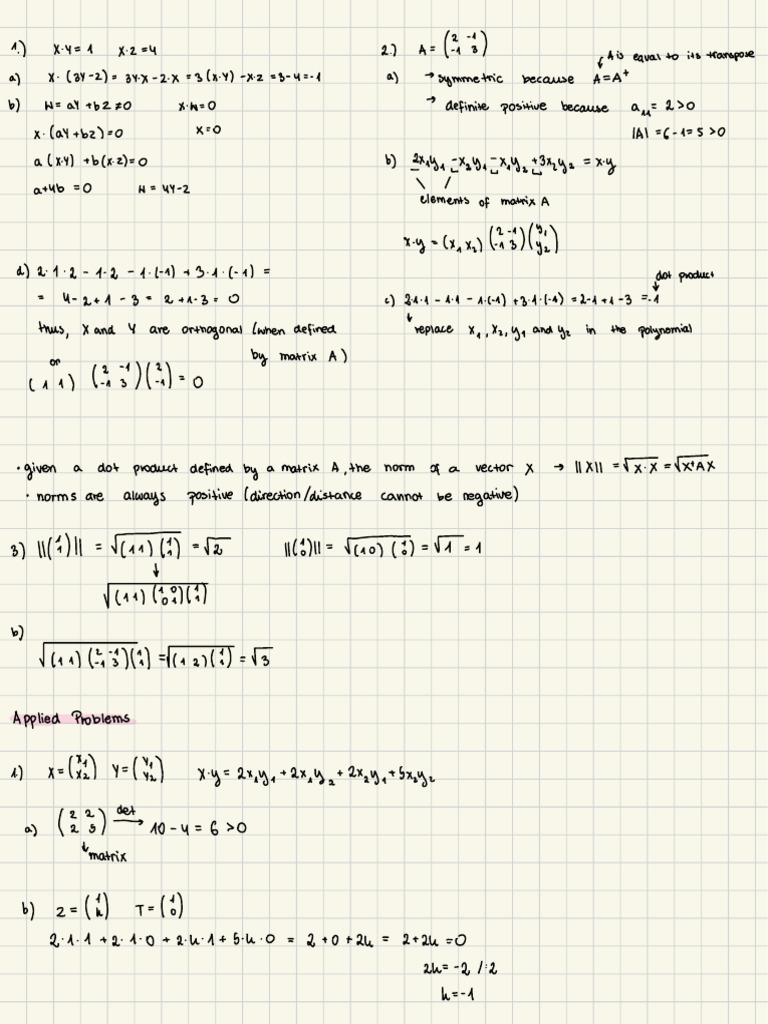 1.) X·Y=1 X·Z=4
a) X·(3Y-Z)=3Y·X-Z·X=3(X·Y)-X·Z=3-4=-1
b) W=aY+bZ≠0 X·W=0
X·(aY+bZ)=0 X=0
a(X·Y)+b(X·Z)=0
a+4b=0 W=4Y-Z
2.) A=(2 -1
-1 3)
A is equal to its transpose
a) → symmetric because A=Aᵗ
→ definite positive because a₁₁=2>0
|A|=6-1=5>0
b) 2x₁y₁-x₂y₁-x₁y₂+3x₂y₂=x·y
elements of matrix A
x·y=(x₁ x₂)(2 -1
-1 3)(y₁
y₂)
d) 2·1·2-1·2-1·(-1)+3·1·(-1)=
=4-2+1-3=2+1-3=0
thus, X and Y are orthogonal (when defined
by matrix A)
or
(1 1)(2 -1
-1 3)(2
-1)=0
dot product
c) 2·1·1-1·1-1·(-1)+3·1·(-1)=2-1+1-3=-1
replace x₁, x₂, y₁ and y₂ in the polynomial
· given a dot product defined by a matrix A, the norm of a vector X → ||X||=√X·X=√XᵗAX
· norms are always positive (direction/distance cannot be negative)
3) ||(1
1)||=√(1 1)(1
1)=√2 ||(1
0)||=√(1 0)(1
0)=√1=1
√(1 1)(1 0
0 1)(1
1)
b)
√(1 1)(2 -1
-1 3)(1
1)=√(1 2)(1
1)=√3
Applied Problems
1) X=(x₁
x₂) Y=(y₁
y₂) X·y=2x₁y₁+2x₁y₂+2x₂y₁+5x₂y₂
a) (2 2
2 5) det → 10-4=6>0
matrix
b) Z=(1
k) T=(1
0)
2·1·1+2·1·0+2·k·1+5·k·0=2+0+2k=2+2k=0
2k=-2 /:2
k=-1